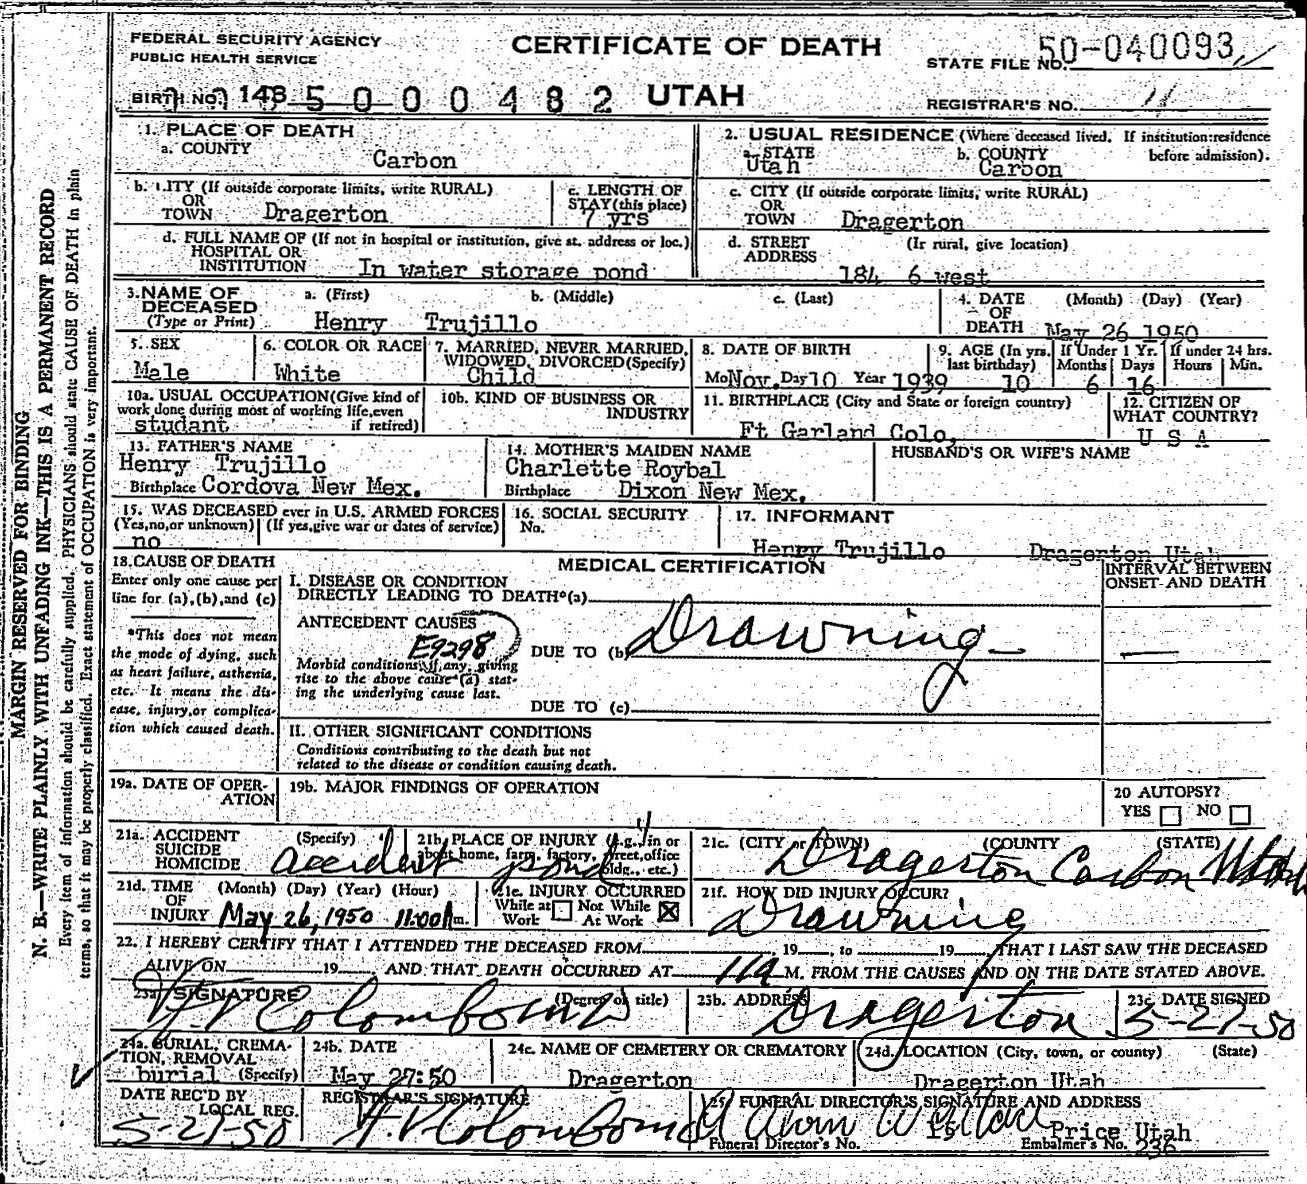 FEDERAL SECURITY AGENCY
PUBLIC HEALTH SERVICE
CERTIFICATE OF DEATH
STATE FILE NO. 50-040093
BIRTH NO. 148 5 0 0 0 4 8 2 UTAH
REGISTRAR'S NO. 11
1. PLACE OF DEATH
a. COUNTY Carbon
2. USUAL RESIDENCE (Where deceased lived. If institution:residence before admission).
a. STATE Utah b. COUNTY Carbon
b. CITY (If outside corporate limits, write RURAL) OR TOWN Dragerton
c. LENGTH OF STAY(this place) 7 yrs
c. CITY (If outside corporate limits, write RURAL) OR TOWN Dragerton
d. FULL NAME OF (If not in hospital or institution, give st. address or loc.) HOSPITAL OR INSTITUTION In water storage pond
d. STREET ADDRESS (If rural, give location) 184 6 west
3. NAME OF DECEASED (Type or Print) a. (First) b. (Middle) c. (Last)
Henry Trujillo
4. DATE OF DEATH (Month) (Day) (Year) May 26 1950
5. SEX Male
6. COLOR OR RACE White
7. MARRIED, NEVER MARRIED, WIDOWED, DIVORCED(Specify) Child
8. DATE OF BIRTH Mo Nov. Day 10 Year 1939
9. AGE (In yrs. last birthday) 10 If Under 1 Yr. Months 6 Days 16 If under 24 hrs. Hours Min.
10a. USUAL OCCUPATION(Give kind of work done during most of working life,even if retired) studant
10b. KIND OF BUSINESS OR INDUSTRY
11. BIRTHPLACE (City and State or foreign country) Ft Garland Colo,
12. CITIZEN OF WHAT COUNTRY? U S A
13. FATHER'S NAME Henry Trujillo
Birthplace Cordova New Mex.
14. MOTHER'S MAIDEN NAME Charlette Roybal
Birthplace Dixon New Mex.
HUSBAND'S OR WIFE'S NAME
15. WAS DECEASED ever in U.S. ARMED FORCES (Yes,no,or unknown) (If yes,give war or dates of service) no
16. SOCIAL SECURITY No.
17. INFORMANT Henry Trujillo Dragerton Utah
18. CAUSE OF DEATH
Enter only one cause per line for (a),(b),and (c)
MEDICAL CERTIFICATION
INTERVAL BETWEEN ONSET AND DEATH
I. DISEASE OR CONDITION DIRECTLY LEADING TO DEATH*(a)
*This does not mean the mode of dying, such as heart failure, asthenia, etc. It means the disease, injury,or complication which caused death.
ANTECEDENT CAUSES E9298
Morbid conditions, if any, giving rise to the above cause (a) stating the underlying cause last.
DUE TO (b) Drowning
DUE TO (c)
II. OTHER SIGNIFICANT CONDITIONS
Conditions contributing to the death but not related to the disease or condition causing death.
19a. DATE OF OPERATION
19b. MAJOR FINDINGS OF OPERATION
20 AUTOPSY? YES NO
21a. ACCIDENT SUICIDE HOMICIDE (Specify) accident
21b. PLACE OF INJURY (e.g., in or about home, farm, factory, street,office bldg., etc.) pond
21c. (CITY or TOWN) (COUNTY) (STATE) Dragerton Carbon Utah
21d. TIME OF INJURY (Month) (Day) (Year) (Hour) May 26, 1950 11:00A m.
21e. INJURY OCCURRED While at Work Not While At Work X
21f. HOW DID INJURY OCCUR? Drowning
22. I HEREBY CERTIFY THAT I ATTENDED THE DECEASED FROM 19 , to 19 , THAT I LAST SAW THE DECEASED
ALIVE ON 19 , AND THAT DEATH OCCURRED AT 11a M. FROM THE CAUSES AND ON THE DATE STATED ABOVE.
23a. SIGNATURE (Degree or title) H.V Colombo MD
23b. ADDRESS Dragerton
23c. DATE SIGNED 5-27-50
24a. BURIAL, CREMATION, REMOVAL (Specify) burial
24b. DATE May 27:50
24c. NAME OF CEMETERY OR CREMATORY Dragerton
24d. LOCATION (City, town, or county) (State) Dragerton Utah
DATE REC'D BY LOCAL REG. 5-27-50
REGISTRAR'S SIGNATURE H.V Colombo MD
25. FUNERAL DIRECTOR'S SIGNATURE AND ADDRESS
Price Utah
Funeral Director's No. Embalmer's No. 236
MARGIN RESERVED FOR BINDING
N. B.—WRITE PLAINLY WITH UNFADING INK—THIS IS A PERMANENT RECORD
Every item of information should be carefully supplied. PHYSICIANS should state CAUSE OF DEATH in plain
terms, so that it may be properly classified. Exact statement of OCCUPATION is very important.